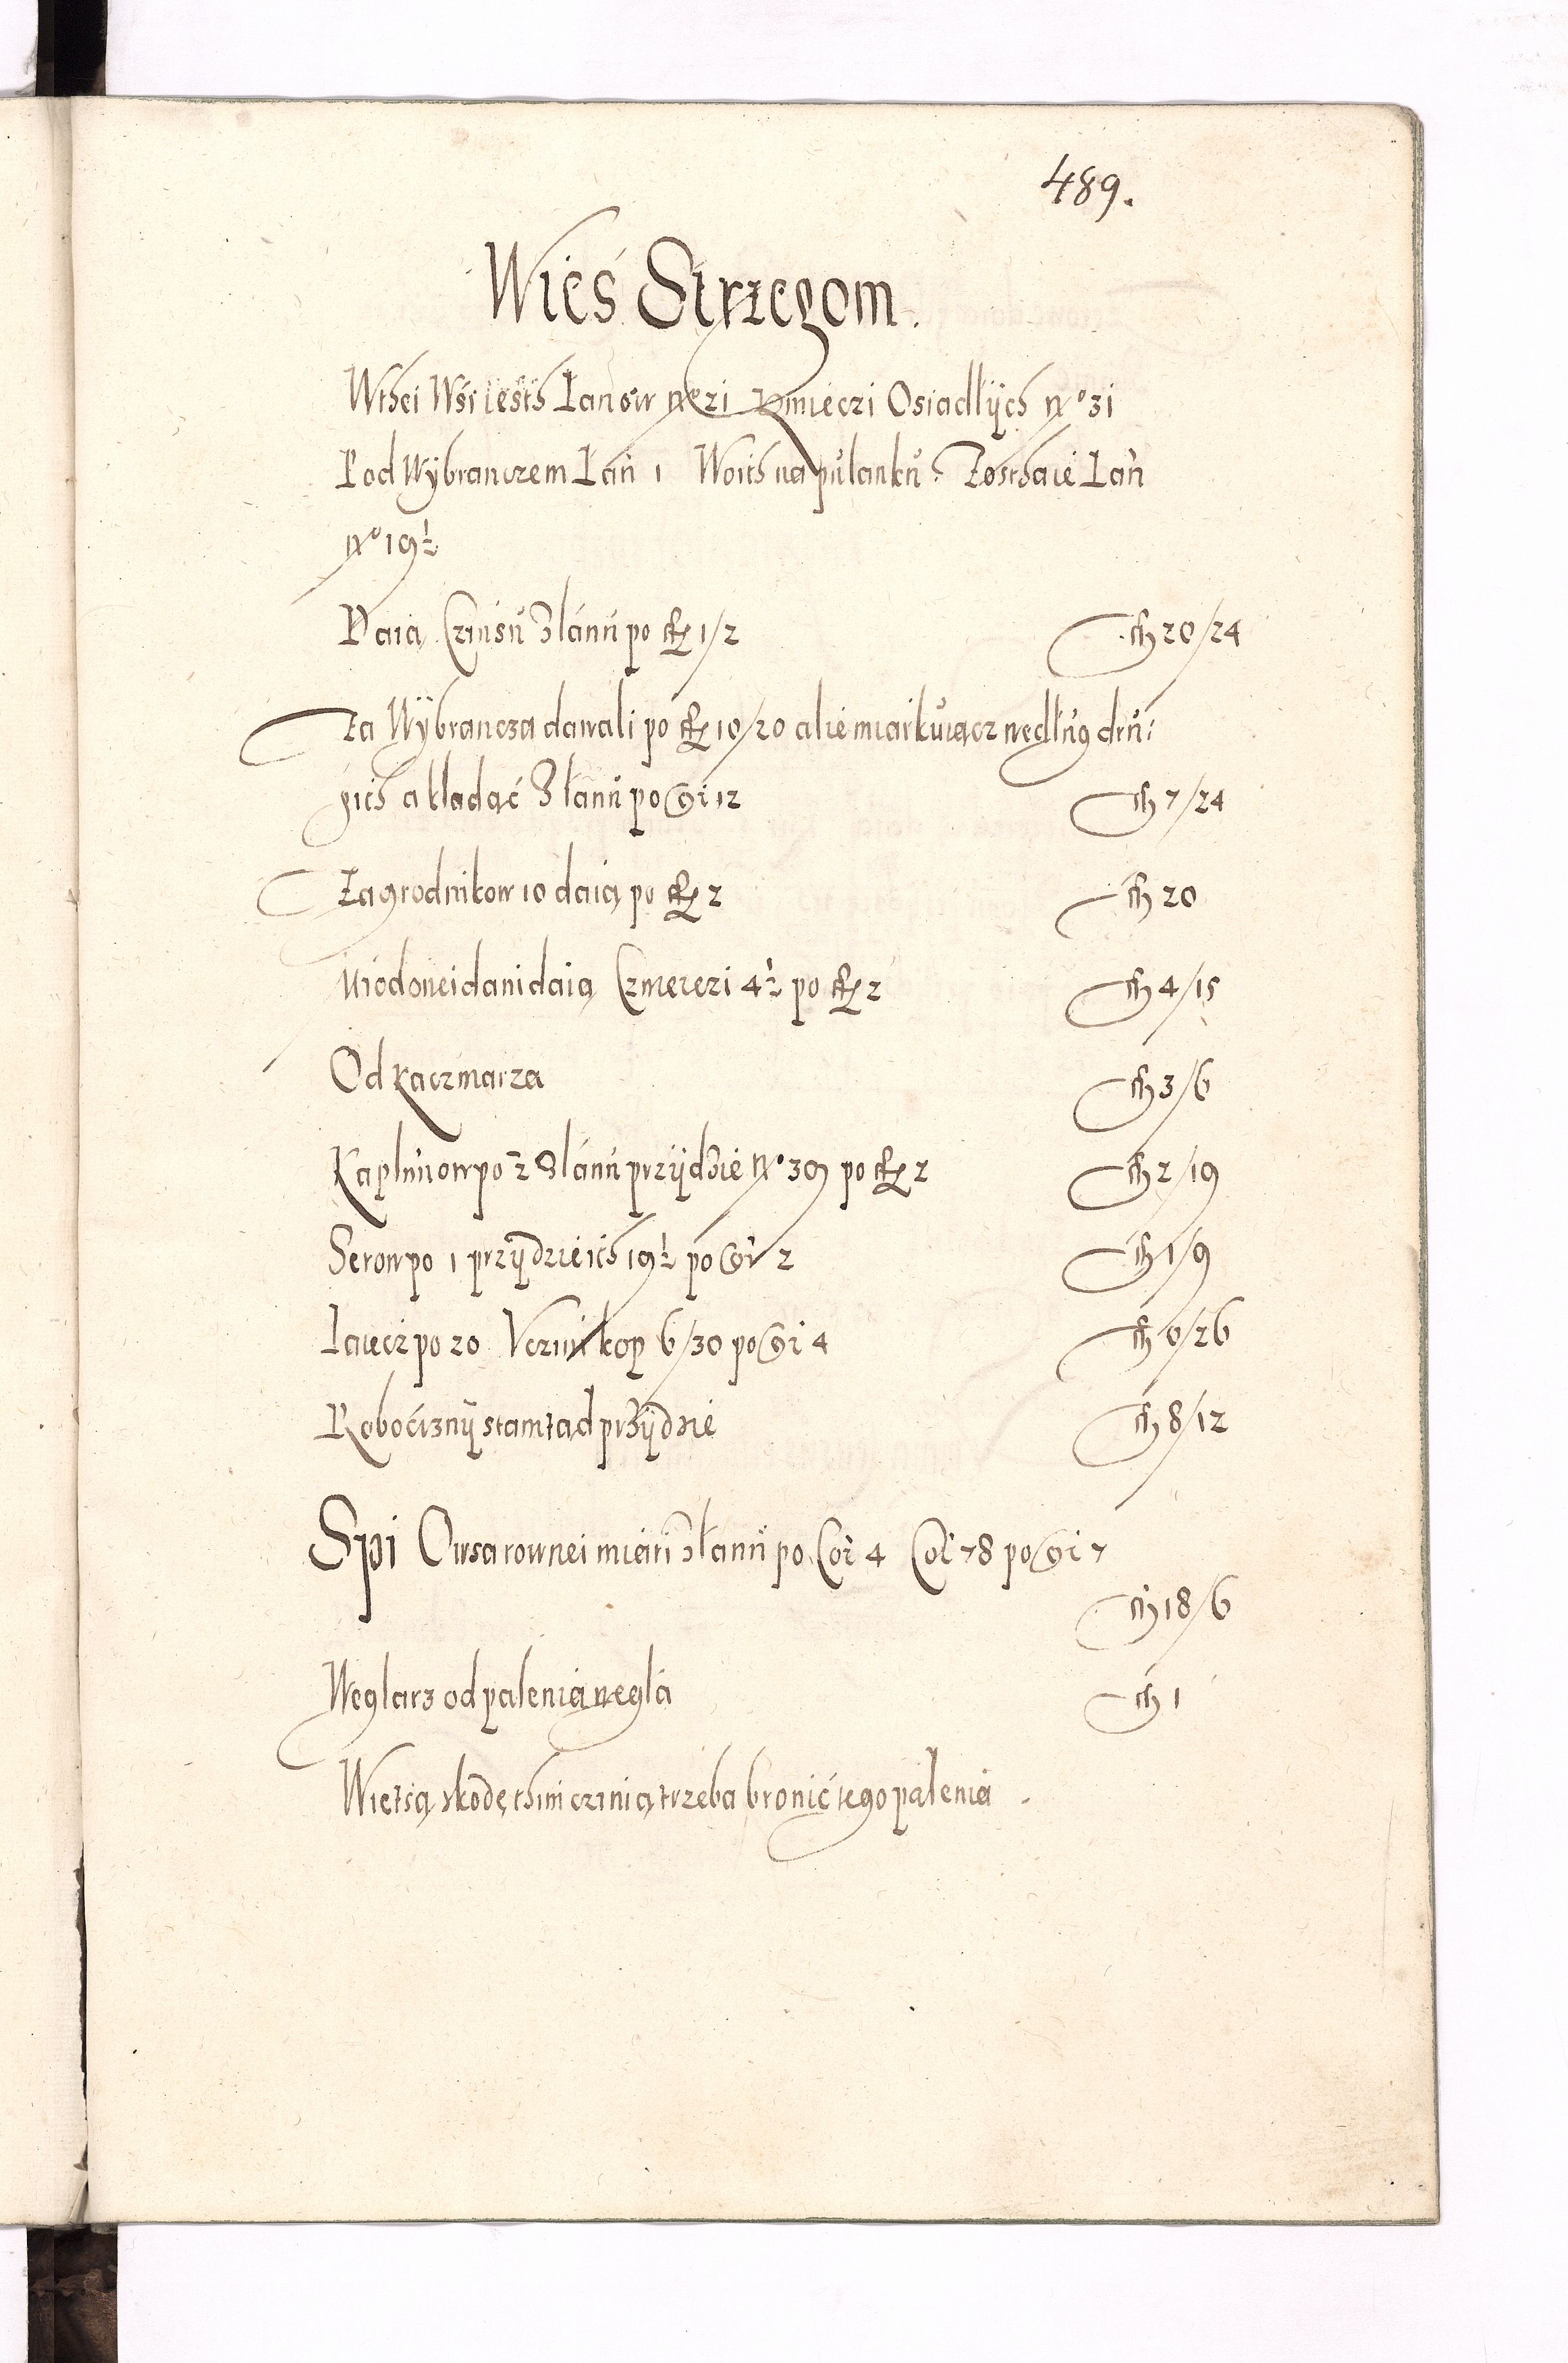 489.
Wieś Strzegom.
Wthei Wśi iesth Łanow No 21 Kmieczi Osiadłÿch No 31
Pod Wÿbranczem Łan 1 Woith na pułanku. Zosthaie Łan
No 19½
Daią Czinśu Złanu po fl 1/2 fl 20/24
Za Wÿbrancza dawali po fl 10/20 alie miarkuiącz według dru:
gich akładać Złanu po gr 12 fl 7/24
Zagrodnikow 10 daią po fl 2 fl 20
Miodonei dani daią Czwierczi 4½ po fl 2 fl 4/15
Od Kaczmarza fl 3/6
Kapłunow po 2 Złanu przÿdzie No 39 po fl 2 fl 2/19
Serow po 1 przÿdzie ich 19½ po gr 2 fl 1/9
Iaiecz po 20 Vczini kop 6/30 po gr 4 fl 0/26
Robociznÿ stamtąd przÿdzie fl 8/12
Spi Owsa rownei miari Złanu po Cor 4 Cor 78 po gr 7
fl 18/6
Weglarz od palenia węgla fl 1
Wietsą skodę thim czinią trzeba bronić tego palenia.